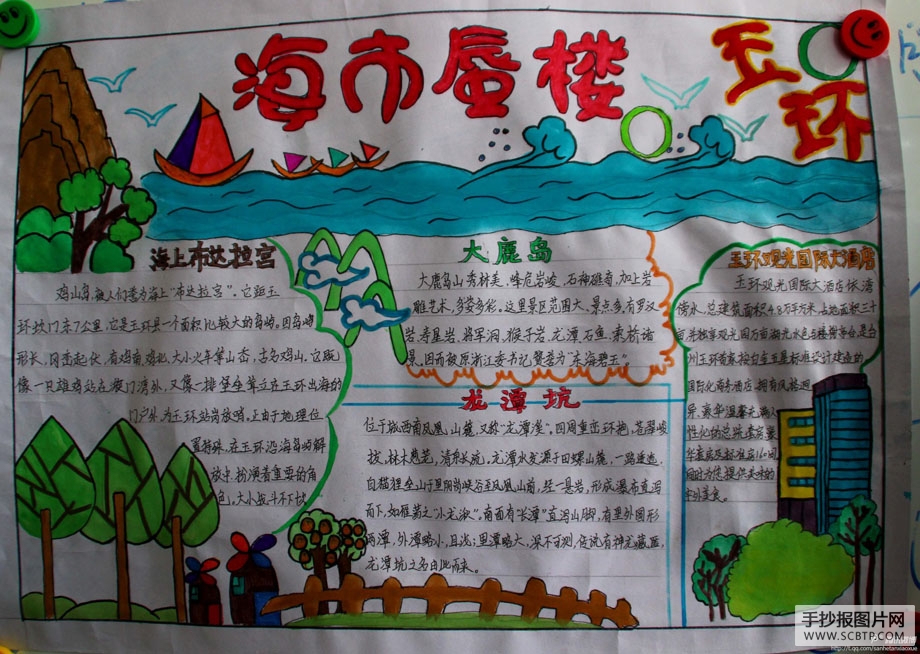 海市蜃楼
玉环
海上布达拉宫
鸡山岛，被人们誉为海上“布达拉宫”。它距玉
环坎门东7公里，它是玉环县一个面积比较大的岛屿。因岛屿
形长，冈峦起伏，有鸡前、鸡北、大小火牛等山岙，古名鸡山，它既
像一只雄鸡站在披山湾外，又像一排堡垒耸立在玉环出海的
门户外，为玉环站岗放哨，正由于地理位
置特殊，在玉环沿海岛屿解
放中扮演着重要的角
色，大小战斗不下
大鹿岛
大鹿岛山秀林美，峰危岩峻，石神礁奇，加上岩
雕艺术，多姿多彩。这里景区范围大，景点多，有罗汉
岩、寿星岩、将军洞、猴子岩、龙潭石鱼、索桥诸
景，因而被原浙江委书记赞誉为“东海碧玉”
龙潭坑
位于城西南凤凰山麓，又称“龙潭溪”。四周重峦环抱，苍翠峻
拔，林木葱茏，清泉长流。龙潭水发源于田螺山麓，一路逶迤，
自猫狸全山于里阳岗峡谷至凤凰山前，经一悬岩，形成瀑布直泻
而下，如雁荡之“小龙湫”。南面有“长潭”直泻山脚，有里外圆形
两潭，外潭略小，且浅；里潭略大，深不可测，传说有神龙藏匿，
龙潭坑之名由此而来。
玉环观光国际大酒店
玉环观光国际大酒店依湾
傍水，总建筑面积4.8万平方米，占地面积三十
亩，并独享观光园万亩湖光水色与楼榭亭台，是台
州玉环首家按白金五星标准设计建造的
国际化商务酒店，拥有风格迥
异、豪华温馨充满人
性化的总统套房豪
华套房及标准房160间
同时为您提供美味的
中外美食。
手抄报图片网
WWW.SCBTP.COM
http://t.qq.com/sanhetanxiaoxue